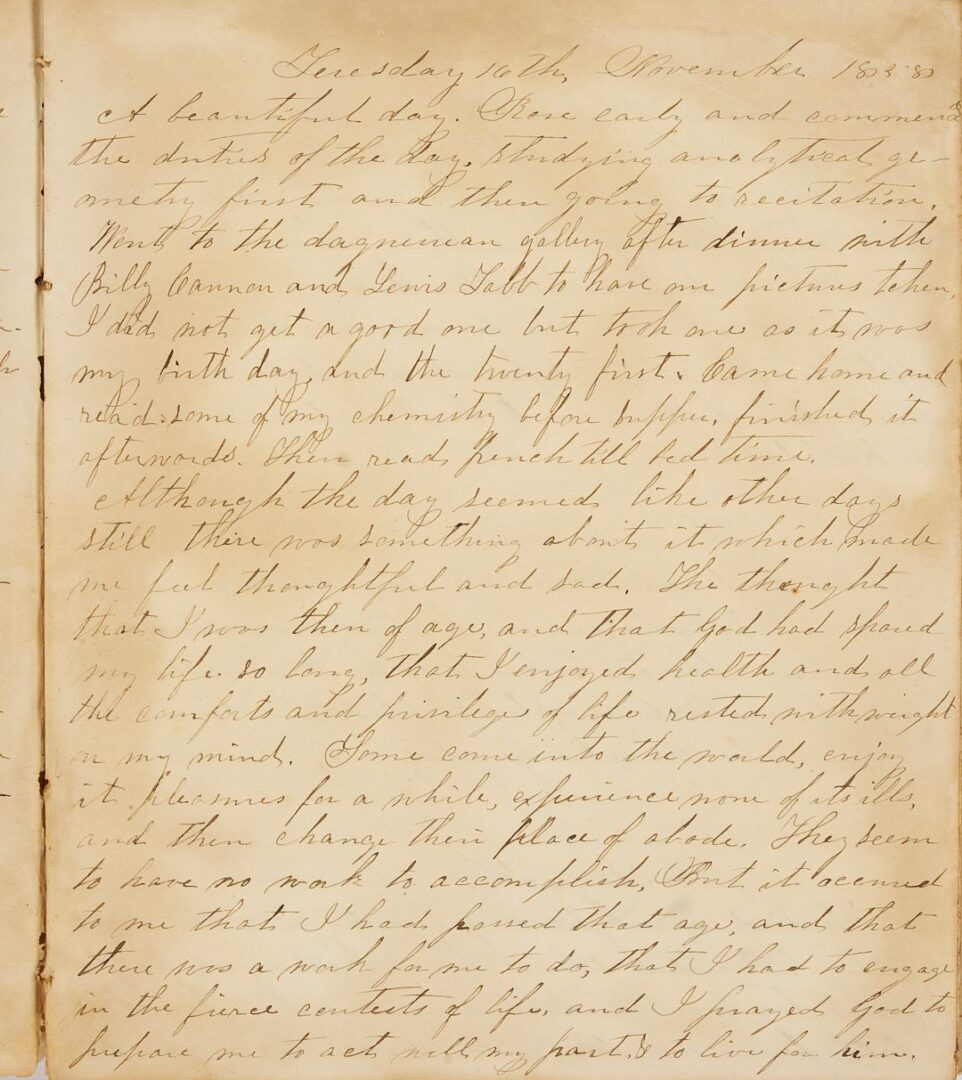 Tuesday 16th, November 1858
A beautiful day. Rose early and commenc'd
the duties of the day, studying analytical ge-
ometry first and then going to recitation.
Went to the daguerrean gallery after dinner with
Billy Cannon and Lewis Tabb to have our pictures taken,
I did not get a good one but took one as it was
my birth day, and the twenty first. Came home and
read some of my chemistry before supper, finished it
afterwards. Then read french till bed time.
Although the day seemed like other days
still there was something about it which made
me feel thoughtful and sad. The thought
that I was then of age, and that God had spared
my life so long, that I enjoyed health and all
the comforts and privileges of life rested with weight
on my mind. Some come into the world, enjoy
it pleasures for a while, experience none of its ills,
and then change their place of abode. They seem
to have no work to accomplish, But it occured
to me that I had passed that age, and that
there was a work for me to do, that I had to engage
in the fierce contests of life, and I prayed God to
prepare me to act well my part & to live for him.